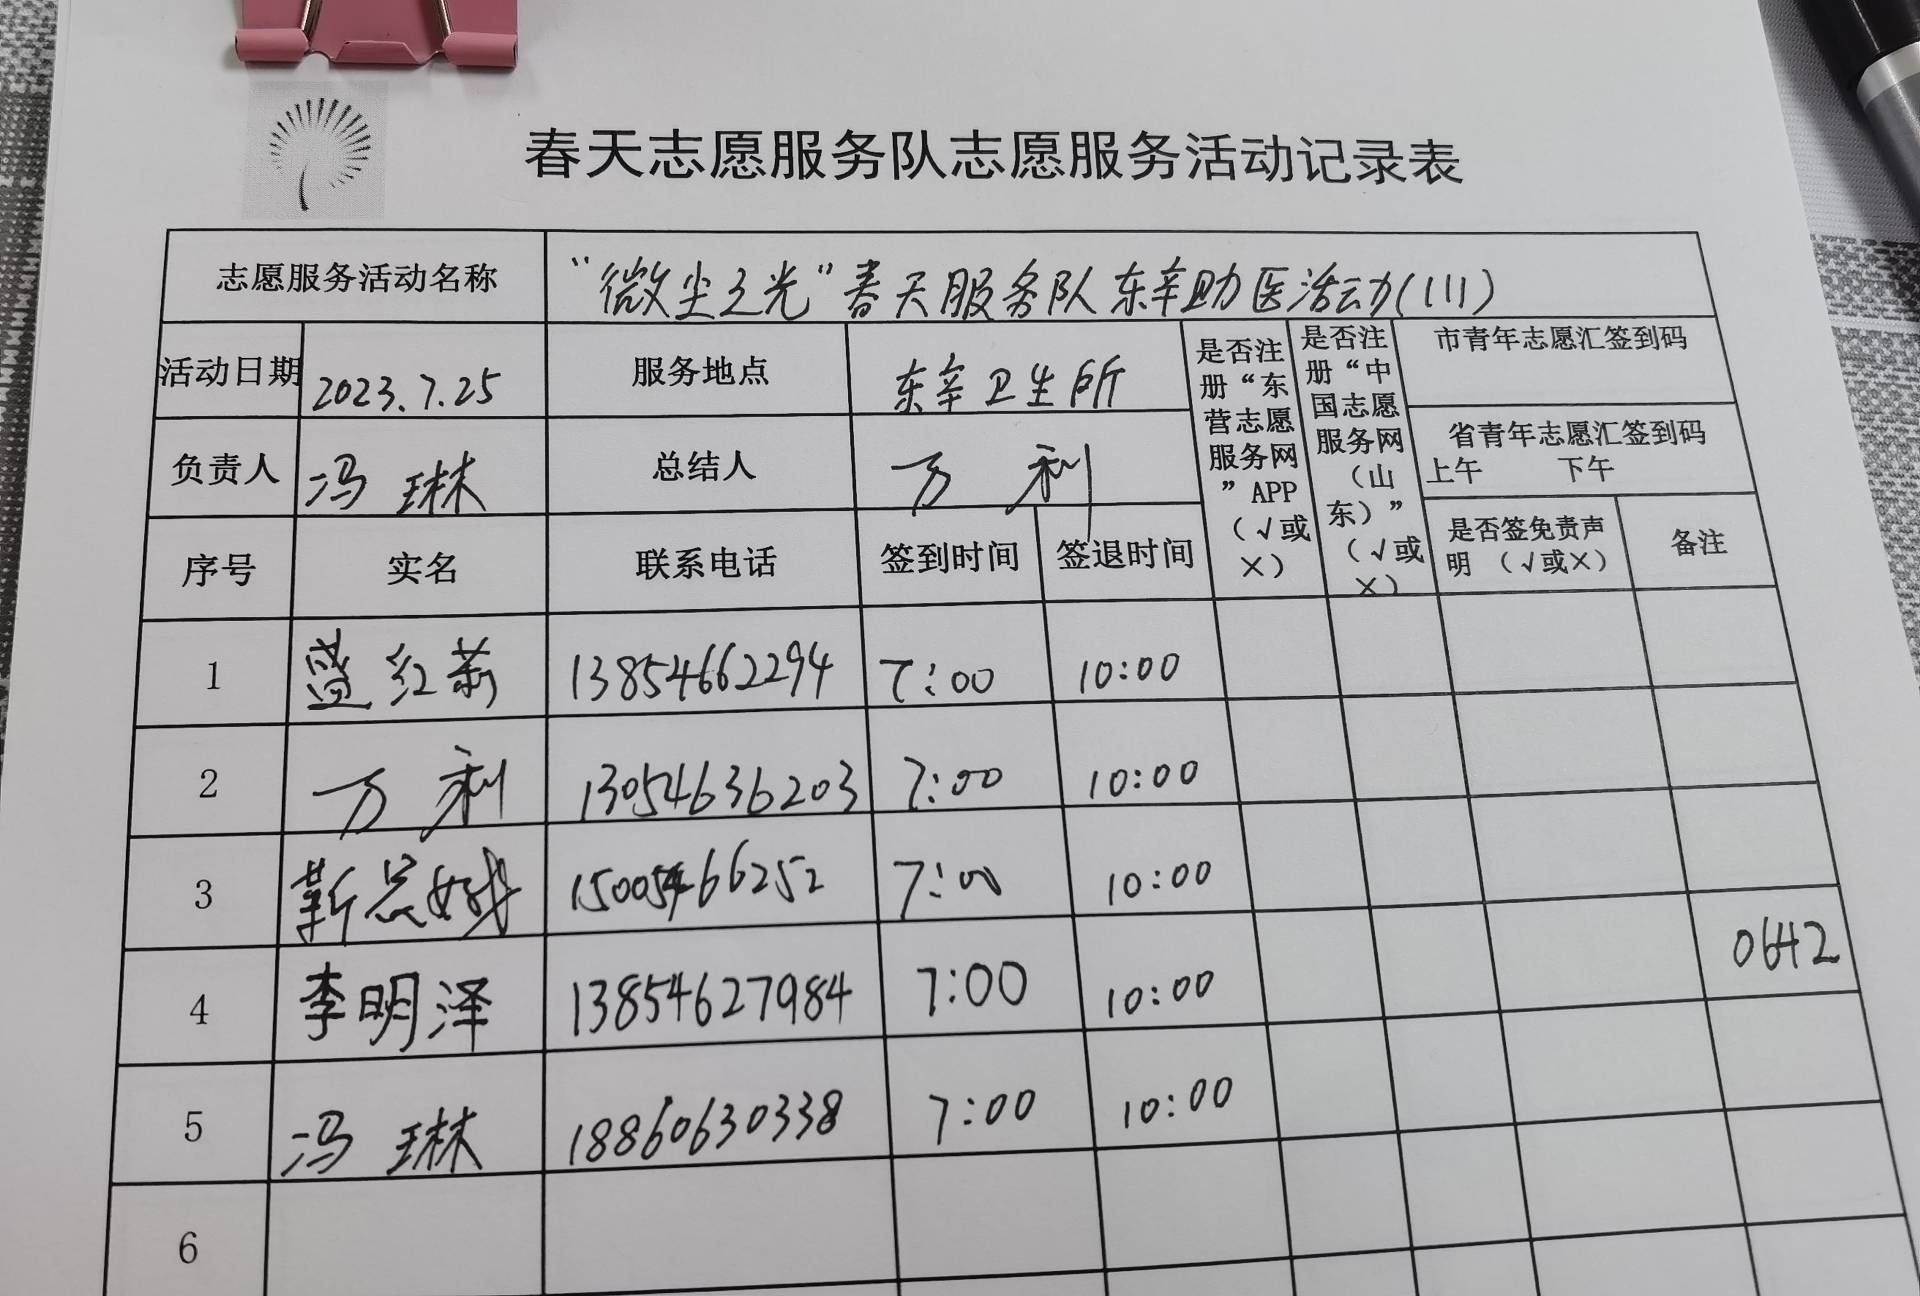 春天志愿服务队志愿服务活动记录表
志愿服务活动名称 “微尘之光”春天服务队东辛助医活动(111)
活动日期 2023.7.25 服务地点 东辛卫生所 是否注册“东营志愿服务网”APP（√或×） 是否注册“中国志愿服务网（山东）”（√或×） 市青年志愿汇签到码
省青年志愿汇签到码
上午 下午
负责人 冯琳 总结人 万利
序号 实名 联系电话 签到时间 签退时间 是否签免责声明（√或×） 备注
1 蓝红莉 13854662294 7:00 10:00
2 万利 13054636203 7:00 10:00
3 靳 15005466252 7:00 10:00
4 李明泽 13854627984 7:00 10:00 0642
5 冯琳 18860630338 7:00 10:00
6